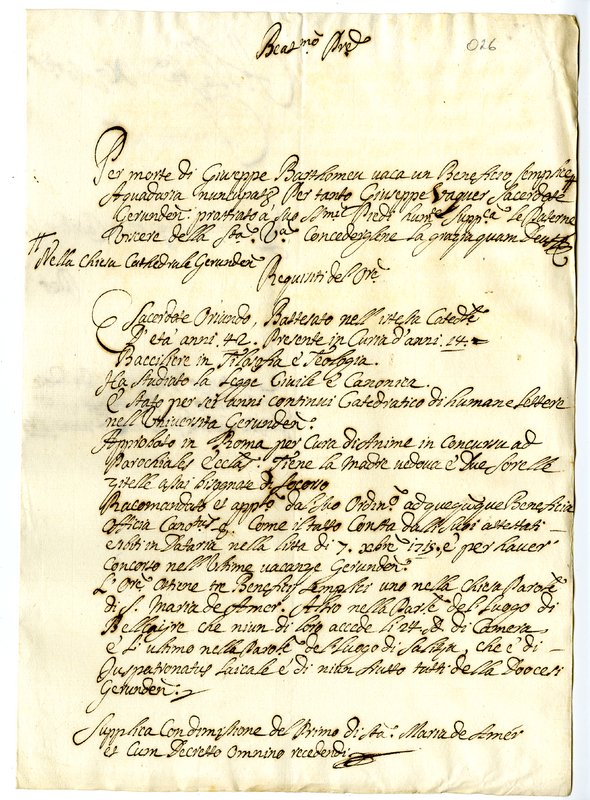 Beat.mo Pre
026
Per morte di Giuseppe Bartholomeu vaca un Beneficio semplice
Aquadaria nuncupato Per tanto Giuseppe Vaguer Sacerdote
Gerunden: prostrato a suo S.mi Piedi hum.e Supp.ca le Paterne
Viscere della Sta. Va. Concedergline la grazia quam Deus
Nella Chiesa Cathedrale Gerunden
Requisiti del Ore
Sacerdote Oriundo, Battesato nell istesa Catedle
D'età anni 42. Presente in Curia d'anni 14.
Baccilliere in Filosofia è Teologia.
Ha studiato la Legge Civile è Canonica.
È stato per sei anni continui Catedratico di humane Lettere
nell'Università Gerunden:
Approbato in Roma per Cura di Anime in concursu ad
Parochiales Eccles: Tiene la Madre vedova è due sorelle
zitelle asai bisognate di socorso
Racomandato et appto da suo Ordino ad quequque Beneficia
Officia Come il tutto Consta dalli suoi attestati
esibiti in Dataria nella lista di 7. xbre 1715. è per haver
Concorso nell'Ultime vacanze Gerunden:
L'Ore Otiene tre Beneficij semplici uno nella Chiesa Paroле
di S. Maria de Amer. Altro nella Parle del Luogo di
Bellaijre che niun di loro accede li 24 di Camera
è L'ultimo nella Parole del Luogo di che è di
Juspatronatus Laicale è di niun frutto tutti della Diocesi
Gerunden:
Supplica Con dimissione del Primo di Sta. Maria de Amer
et Cum Decretto Omnino recedendi